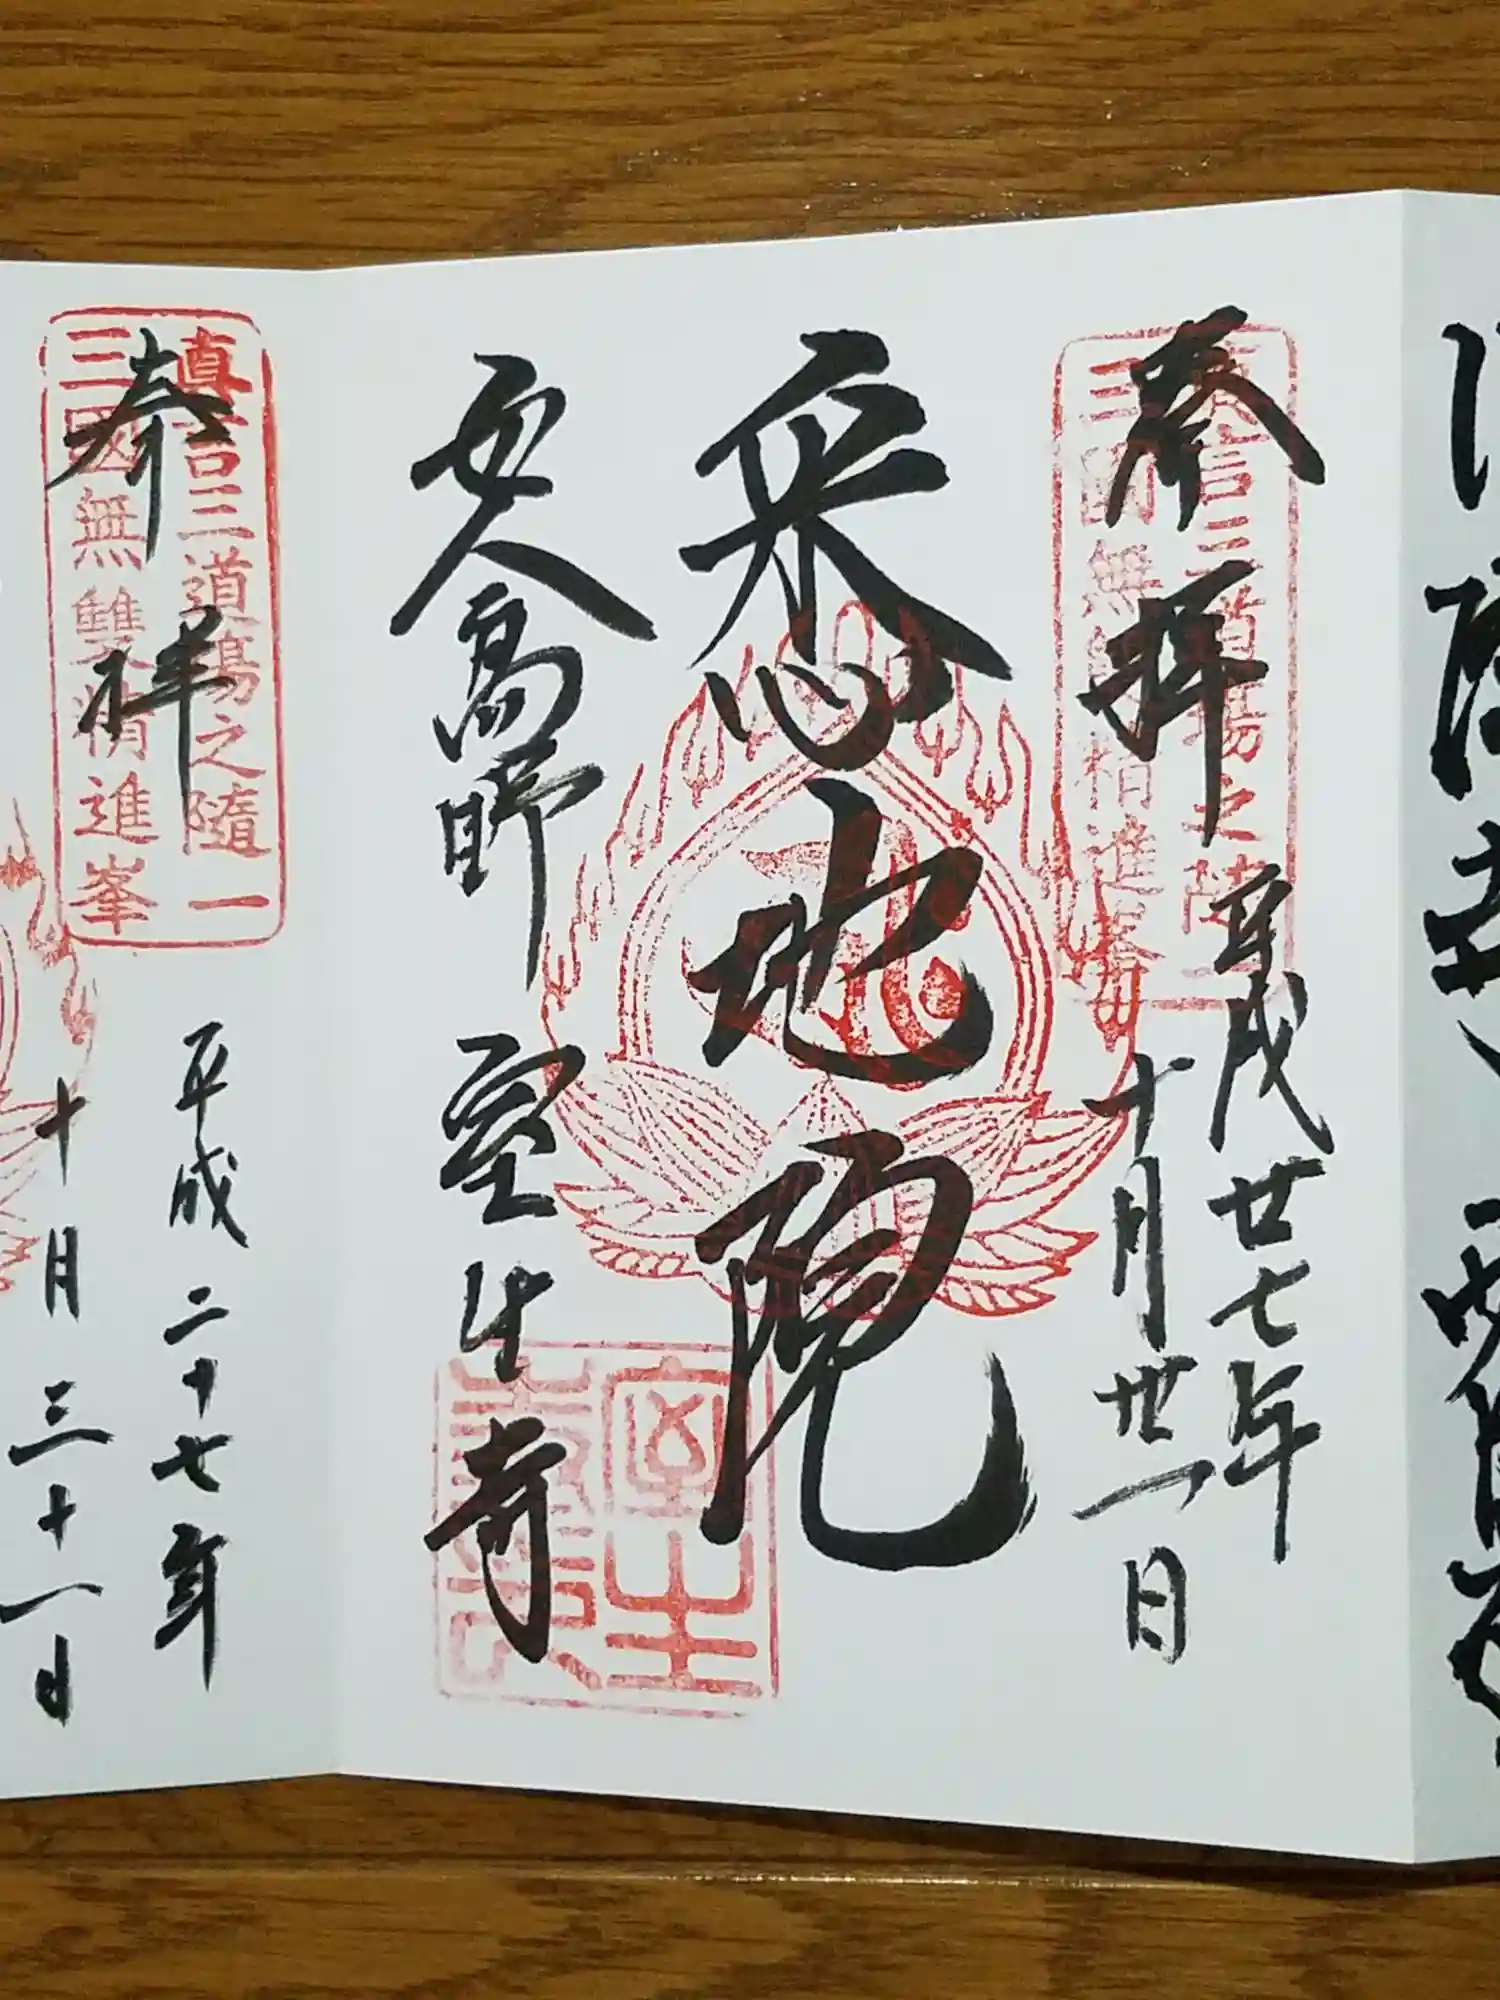 奉拝
平成廿七年
十月卅一日
悉地院
女人高野
室生寺
真言三道場之随一
三國無雙精進峯
室生寺印
奉拝
平成二十七年
十月三十一日
真言三道場之隨一
三國無雙精進峯